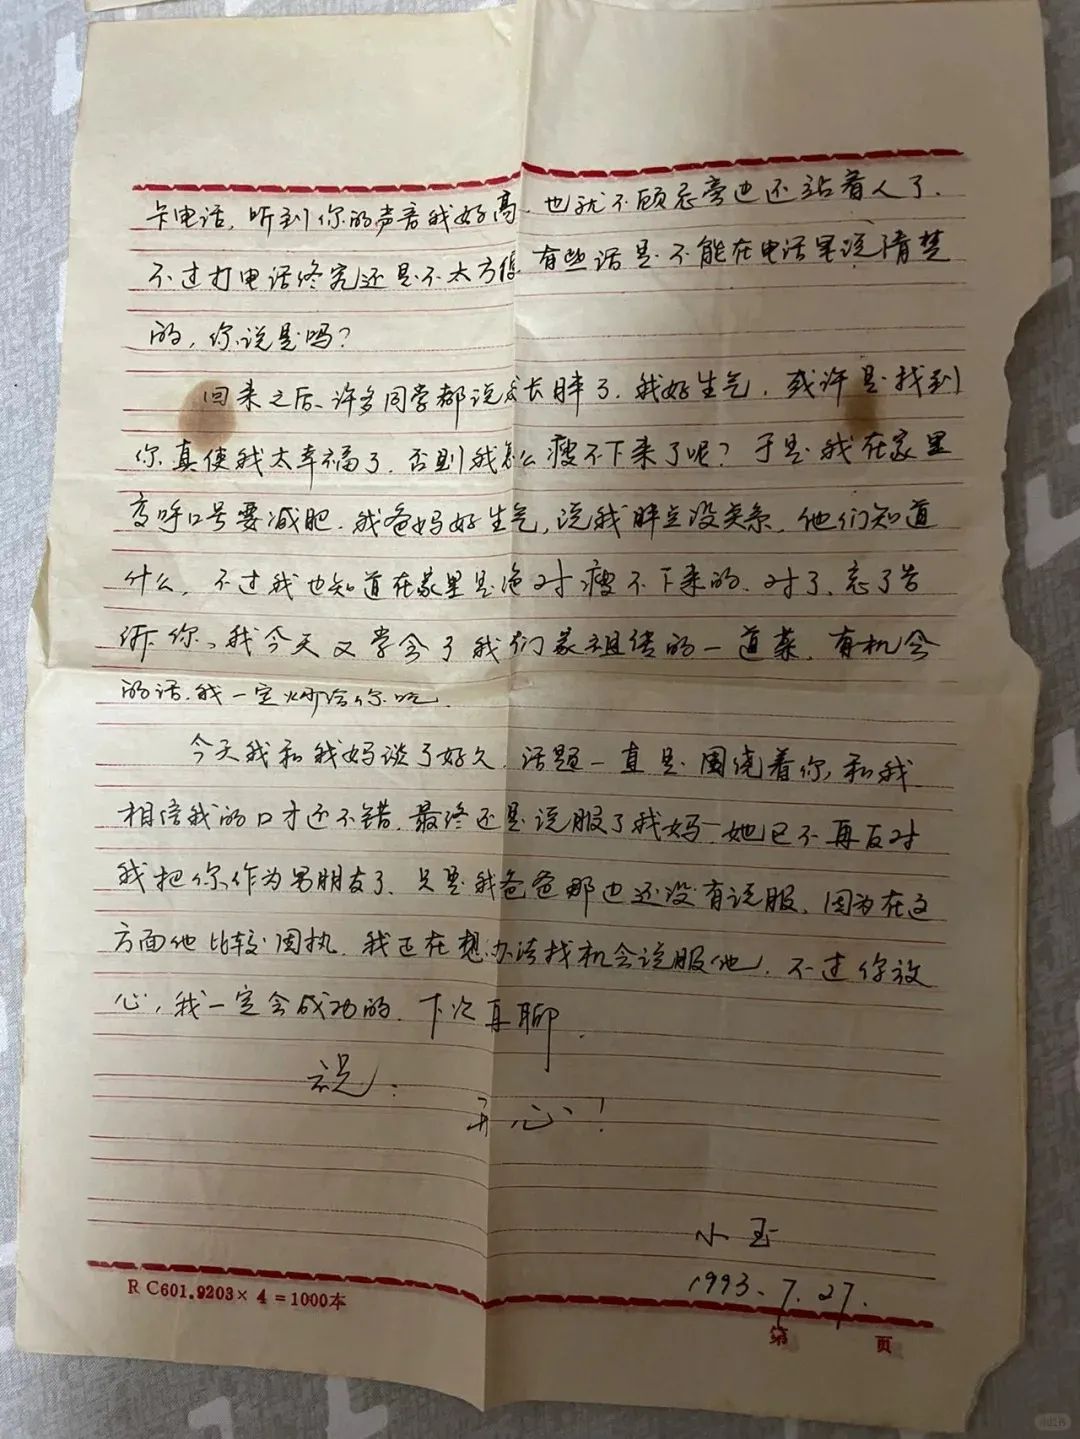 卡电话，听到你的声音我好高，也就不顾忌旁边还站着人了．
不过打电话终究还是不太方便，有些话是不能在电话里说清楚
的，你说是吗？
回来之后、许多同学都说我长胖了．我好生气．或许是找到
你真使我太幸福了，否则我怎么瘦不下来了呢？于是我在家里
高呼口号要减肥．我爸妈好生气，说我胖点没关系，他们知道
什么．不过我也知道在家里是绝对瘦不下来的．对了、忘了告
诉你、我今天又学会了我们家祖传的一道菜，有机会
的话．我一定炒给你吃．
今天我和我妈谈了好久．话题一直是围绕着你，和我．
相信我的口才还不错．最终还是说服了我妈—她已不再反对
我把你作为男朋友了、只是我爸爸那边还没有说服．因为在这
方面他比较固执．我正在想办法找机会说服他．不过你放
心，我一定会成功的．下次再聊．
祝：
开心！
小玉
1993.7.27.
R C601.9203×4=1000本
第 页
小红书